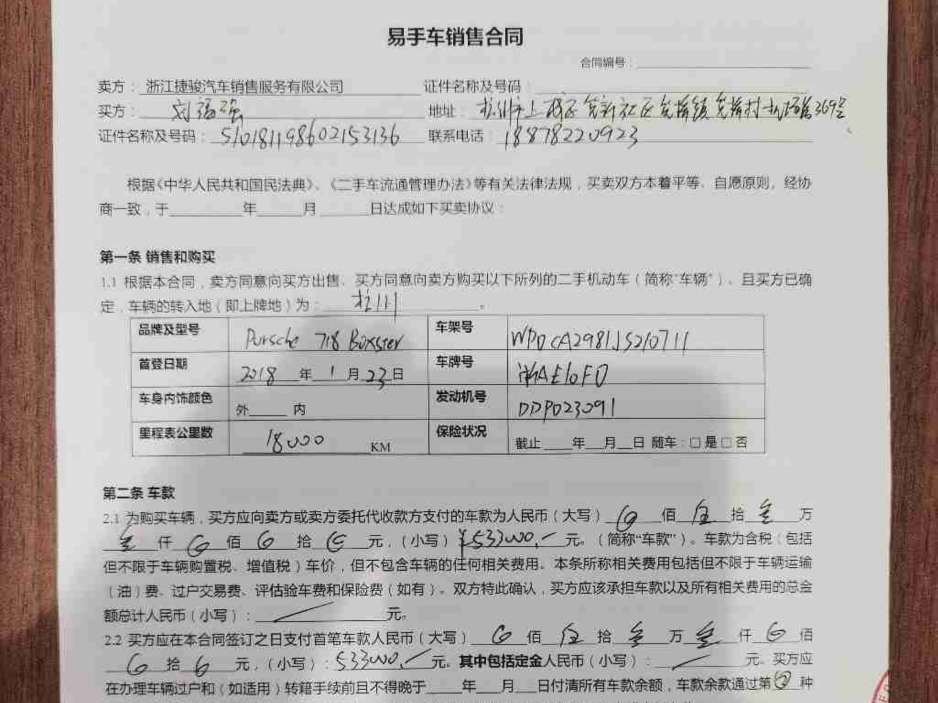 易手车销售合同
合同编号：
卖方：浙江捷骏汽车销售服务有限公司 证件名称及号码
买方：刘福强 地址：杭州市上城区 369号
证件名称及号码：510181198602153136 联系电话：18878220923
根据《中华人民共和国民法典》、《二手车流通管理办法》等有关法律法规，买卖双方本着平等、自愿原则，经协
商一致，于 年 月 日达成如下买卖协议：
第一条 销售和购买
1.1 根据本合同，卖方同意向买方出售、买方同意向卖方购买以下所列的二手机动车（简称“车辆”）、且买方已确
定，车辆的转入地（即上牌地）为：杭州。
品牌及型号 Porsche 718 Boxster 车架号 WP0CA2981JS210711
首登日期 2018年1月23日 车牌号 浙AE10F0
车身内饰颜色 外 内 发动机号 DDP023091
里程表公里数 18000 KM 保险状况 截止 年 月 日 随车：□是□否
第二条 车款
2.1 为购买车辆，买方应向卖方或卖方委托代收款方支付的车款为人民币（大写） 佰 伍 拾 叁 万
叁 仟 佰 拾 元，（小写）¥533000,- 元。（简称“车款”）。车款为含税（包括
但不限于车辆购置税、增值税）车价，但不包含车辆的任何相关费用。本条所称相关费用包括但不限于车辆运输
（油）费、过户交易费、评估验车费和保险费（如有）。双方特此确认，买方应该承担车款以及所有相关费用的总金
额总计人民币（小写）： 元。
2.2 买方应在本合同签订之日支付首笔车款人民币（大写） 佰 伍 拾 叁 万 叁 仟 佰
拾 元，（小写）：533000,- 元。其中包括定金人民币（小写）： 元。买方应
在办理车辆过户和（如适用）转籍手续前且不得晚于 年 月 日付清所有车款余额，车款余款通过第 种